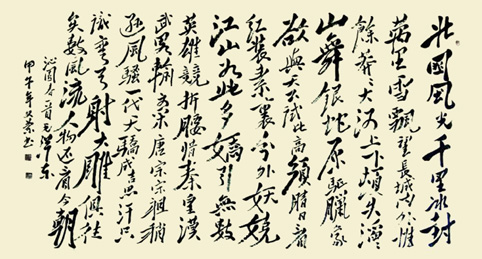 北國風光千里冰封
萬里雪飄望長城內外惟
餘莽莽大河上下頓失滔滔
山舞銀蛇原馳臘象
欲與天公試比高須晴日看
紅裝素裹分外妖嬈
江山如此多嬌引無數
英雄競折腰惜秦皇漢
武畧輸文采唐宗宋祖稍
遜風騷一代天驕成吉思汗只
識彎弓射大雕俱往
矣數風流人物還看今朝
沁園春雪毛澤東
甲午年書